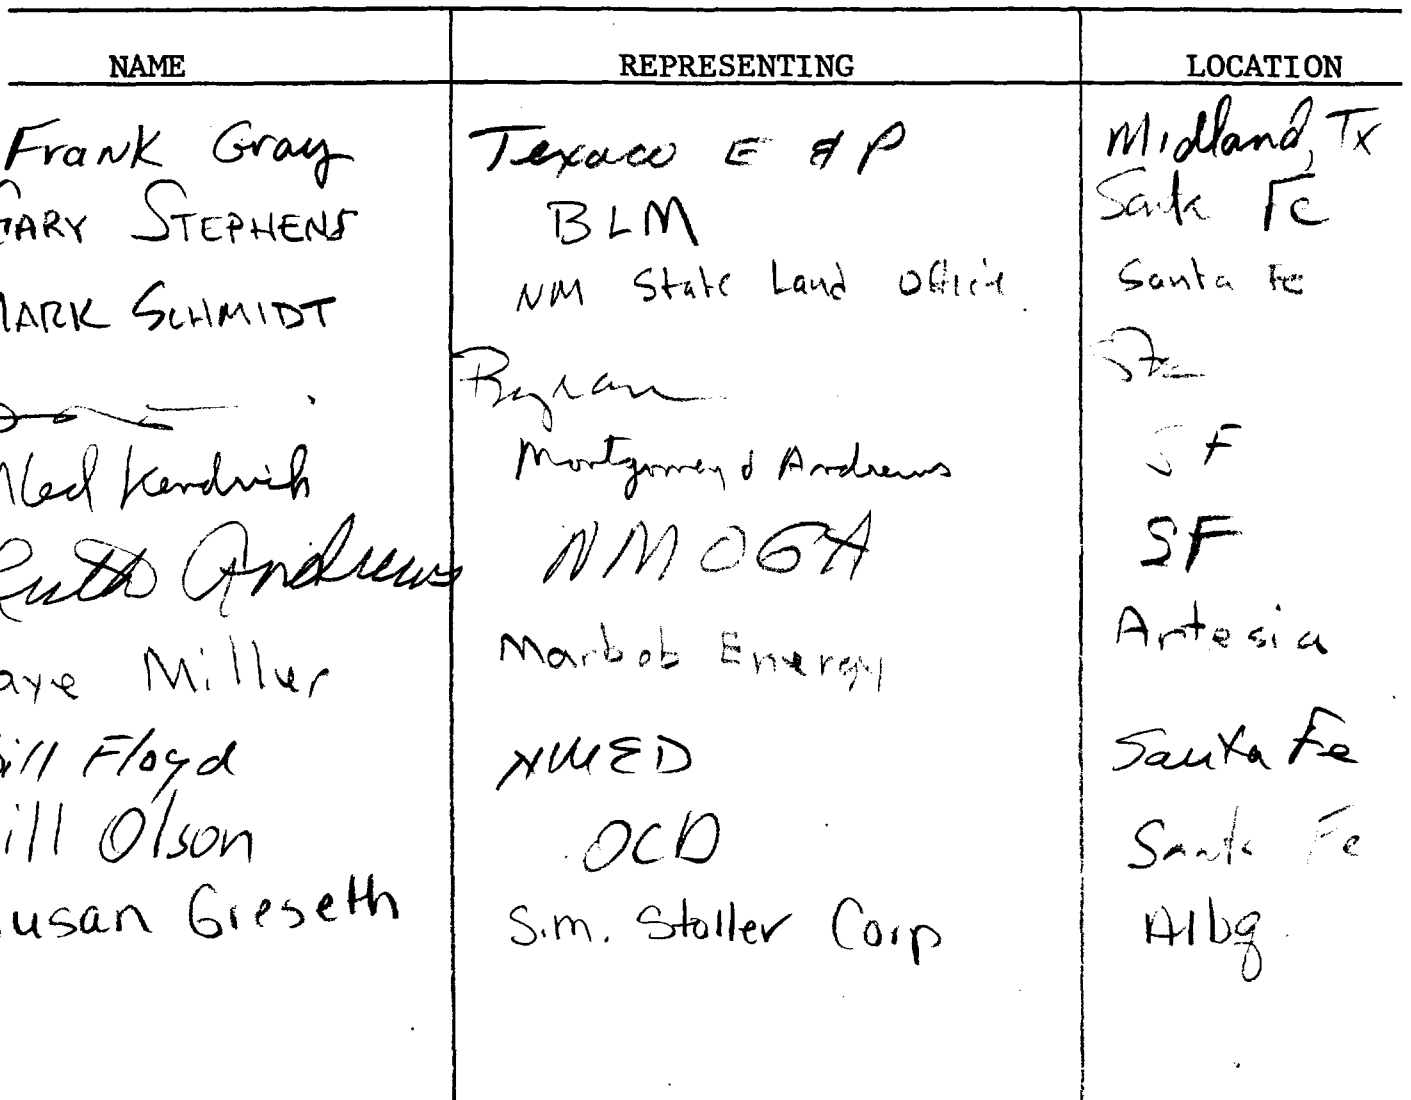 NAME REPRESENTING LOCATION
Frank Gray Texaco E & P Midland, Tx
GARY STEPHENS BLM Santa Fe
MARK SCHMIDT NM State Land Office Santa Fe
Ned Kendrick Montgomery & Andrews SF
Ruth Andrews NMOGA SF
aye Miller Marbob Energy Artesia
ill Floyd NMED Santa Fe
ill Olson OCD Santa Fe
usan Gieseth S.M. Stoller Corp Albq